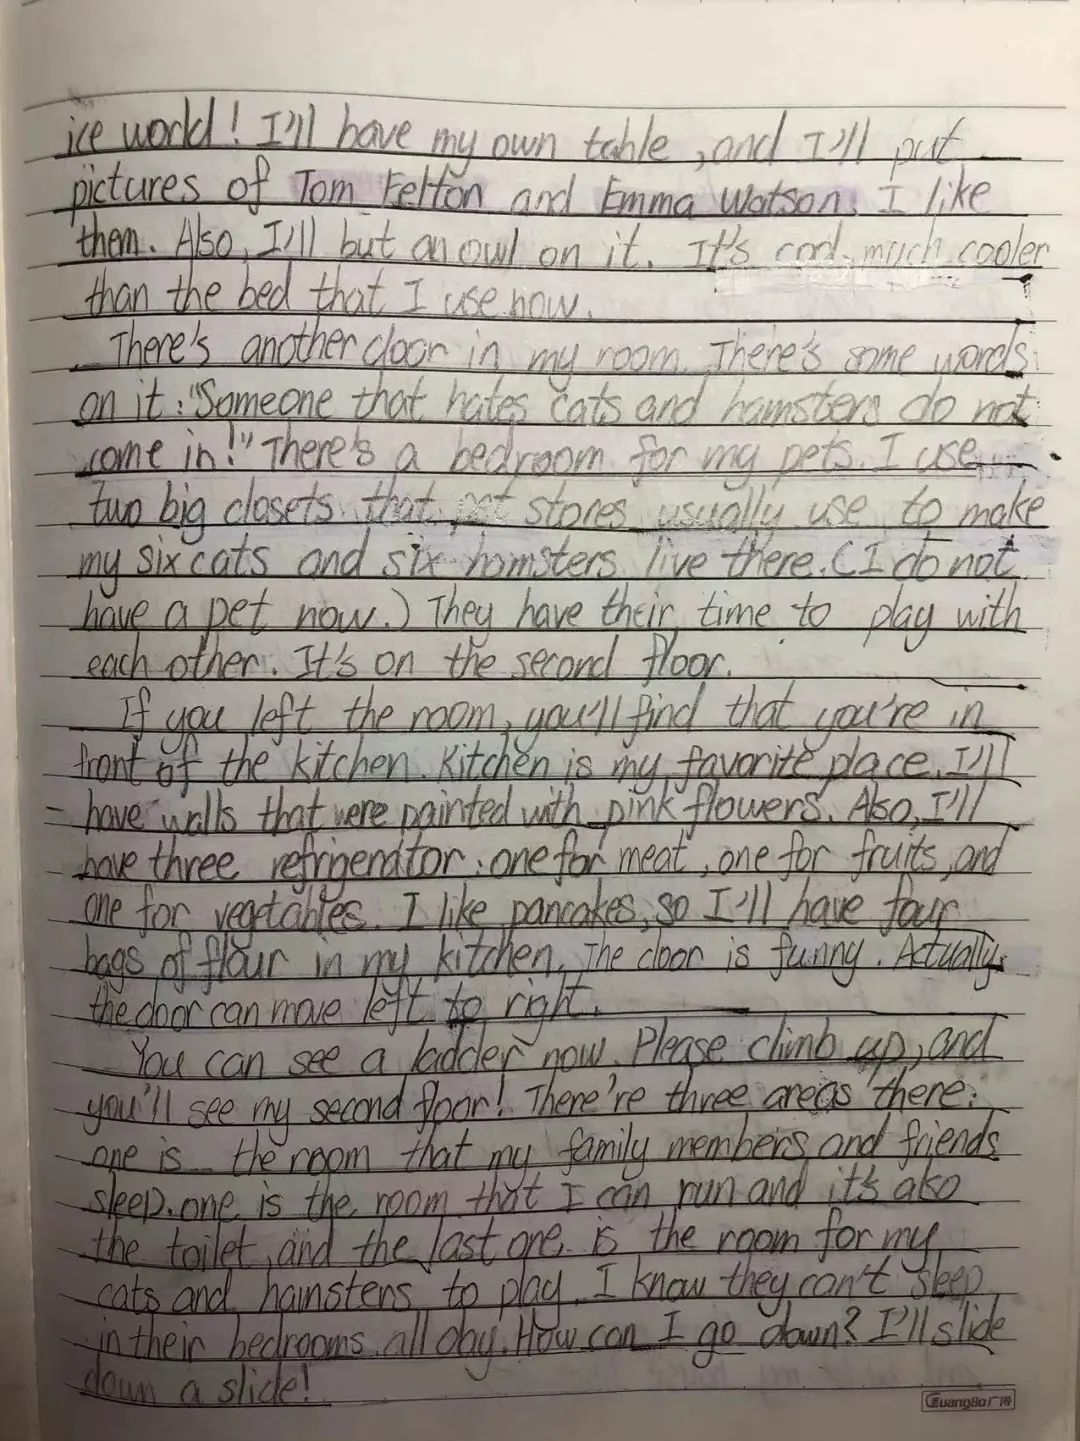 ice world! I'll have my own table, and I'll put
pictures of Tom Felton and Emma Watson. I like
them. Also, I'll but an owl on it. It's cool, much cooler
than the bed that I use now.
There's another door in my room. There's some words
on it: "Someone that hates cats and hamsters do not
come in!" There's a bedroom for my pets. I use
two big closets that pet stores usually use to make
my six cats and six hamsters live there. (I do not
have a pet now.) They have their time to play with
each other. It's on the second floor.
If you left the room, you'll find that you're in
front of the kitchen. Kitchen is my favorite place. I'll
have walls that were painted with pink flowers. Also, I'll
have three refrigerator: one for meat, one for fruits, and
one for vegetables. I like pancakes, so I'll have four
bags of flour in my kitchen. The door is funny. Actually,
the door can move left to right.
You can see a ladder now. Please climb up, and
you'll see my second floor! There're three areas there:
one is the room that my family members and friends
sleep, one is the room that I can run and it's also
the toilet, and the last one is the room for my
cats and hamsters to play. I know they can't sleep
in their bedrooms all day. How can I go down? I'll slide
down a slide!
GuangBo 广博